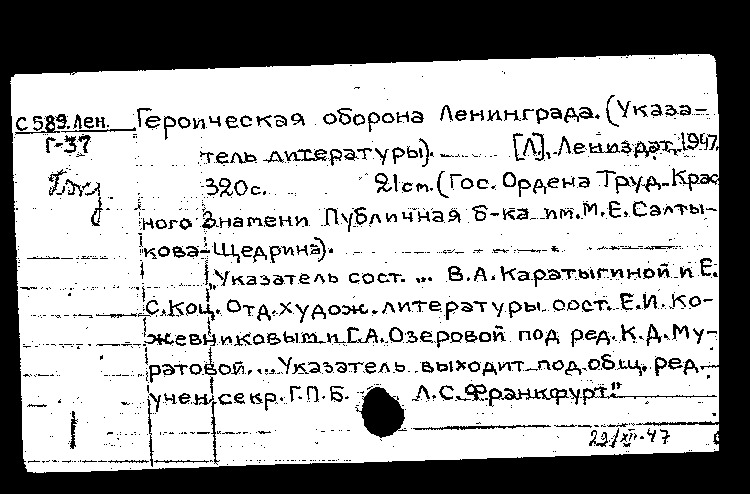 С 589.Лен. Героическая оборона Ленинграда. (Указа-
Г-37
тель литературы). [Л], Лениздат, 1947.
320с. 21cm. (Гос. Ордена Труд. Крас
ного Знамени Публичная б-ка им. М.Е. Салты-
кова-Щедрина).
"Указатель сост. ... В.А. Каратыгиной и Е.
С. Коц. Отд. худож. литературы сост. Е.И. Ко-
жевниковым и Г.А. Озеровой под ред. К.Д. Му-
ратовой. ... Указатель выходит под общ. ред.
учен. секр. Г.П.Б. Л.С. Франкфурт."
22/XII-47